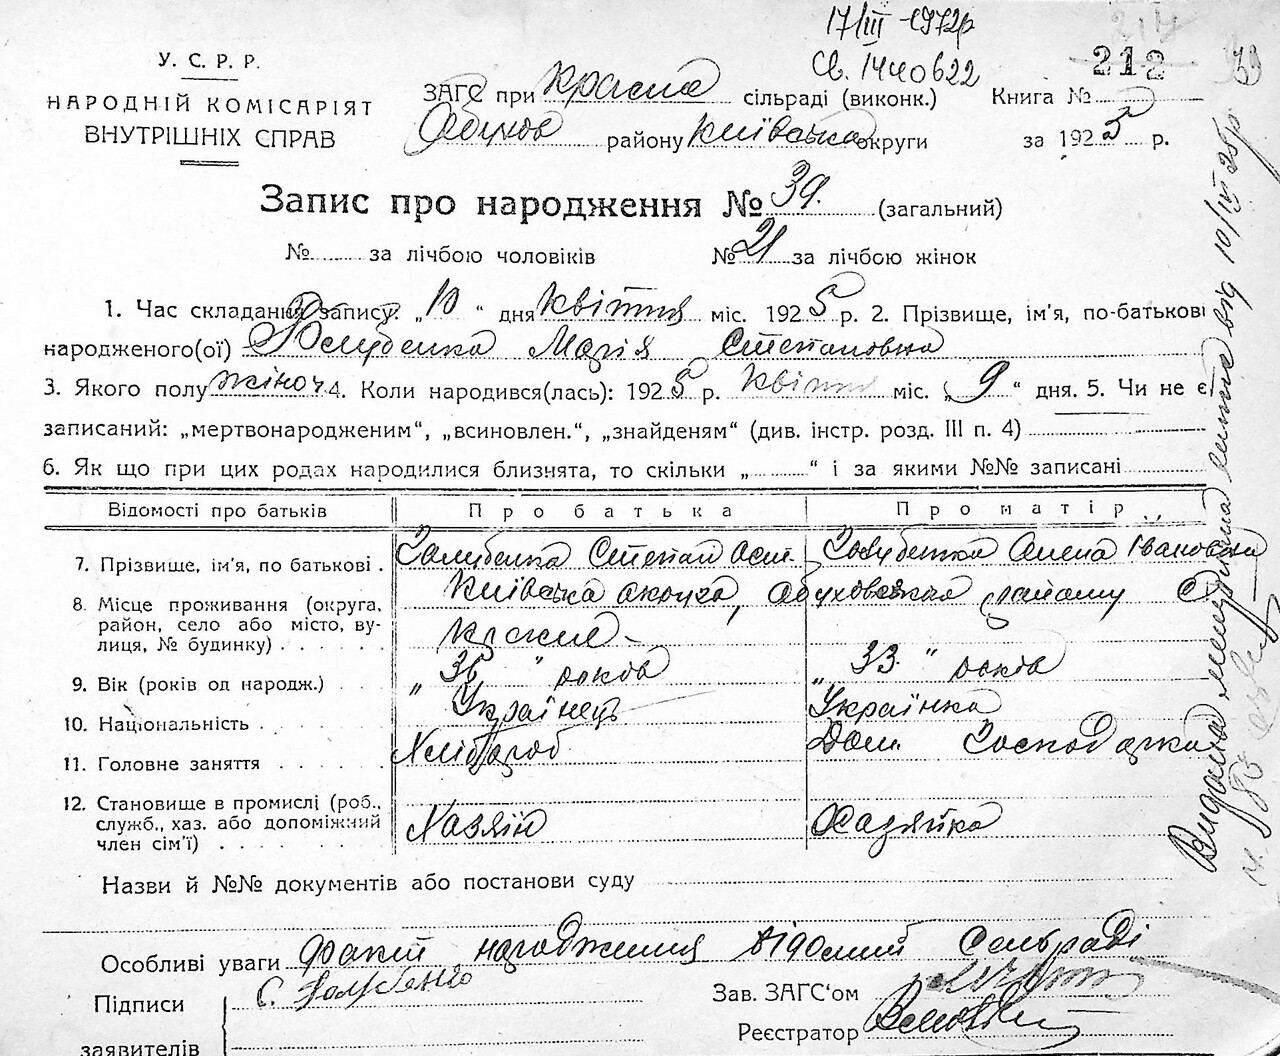 17/III-1972р
Св. 1440622
212
У. С. Р. Р.
НАРОДНІЙ КОМІСАРІЯТ
ВНУТРІШНІХ СПРАВ
ЗАГС при Красна сільраді (виконк.) Книга №
Обухов району Київська округи за 1925 р.
Запис про народження № 39. (загальний)
№ за лічбою чоловіків № 21 за лічбою жінок
1. Час складання запису: „10“ дня квітня міс. 1925 р. 2. Прізвище, ім'я, по-батькові
народженого(ої) Марія Степановна
3. Якого полу жіноч 4. Коли народився(лась): 1925 р. квітня міс. „9“ дня. 5. Чи не є
записаний: „мертвонародженим“, „всиновлен.“, „знайденям“ (див. інстр. розд. III п. 4)
6. Як що при цих родах народилися близнята, то скільки „ “ і за якими №№ записані
Відомості про батьків Про батька Про матір
7. Прізвище, ім'я, по батькові . Степан Голубенка Олена Івановна
8. Місце проживання (округа, Київська округа, Обуховского району С.
район, село або місто, ву-
лиця, № будинку) . . . . .
9. Вік (років од народж.) . . „ “ років „33.“ років
10. Національність . . . . . Українець Українка
11. Головне заняття . . . . . Хлібороб Дом. Господарка
12. Становище в промислі (роб.,
служб., хаз. або допоміжний Хазяїн Хазяйка
член сім'ї) . . . . . . . .
Назви й №№ документів або постанови суду
Особливі уваги факт народження відомий Сельраді
Підписи С. Голубенко Зав. ЗАГС'ом
заявителів Реєстратор
Видана від 10/IV 25р